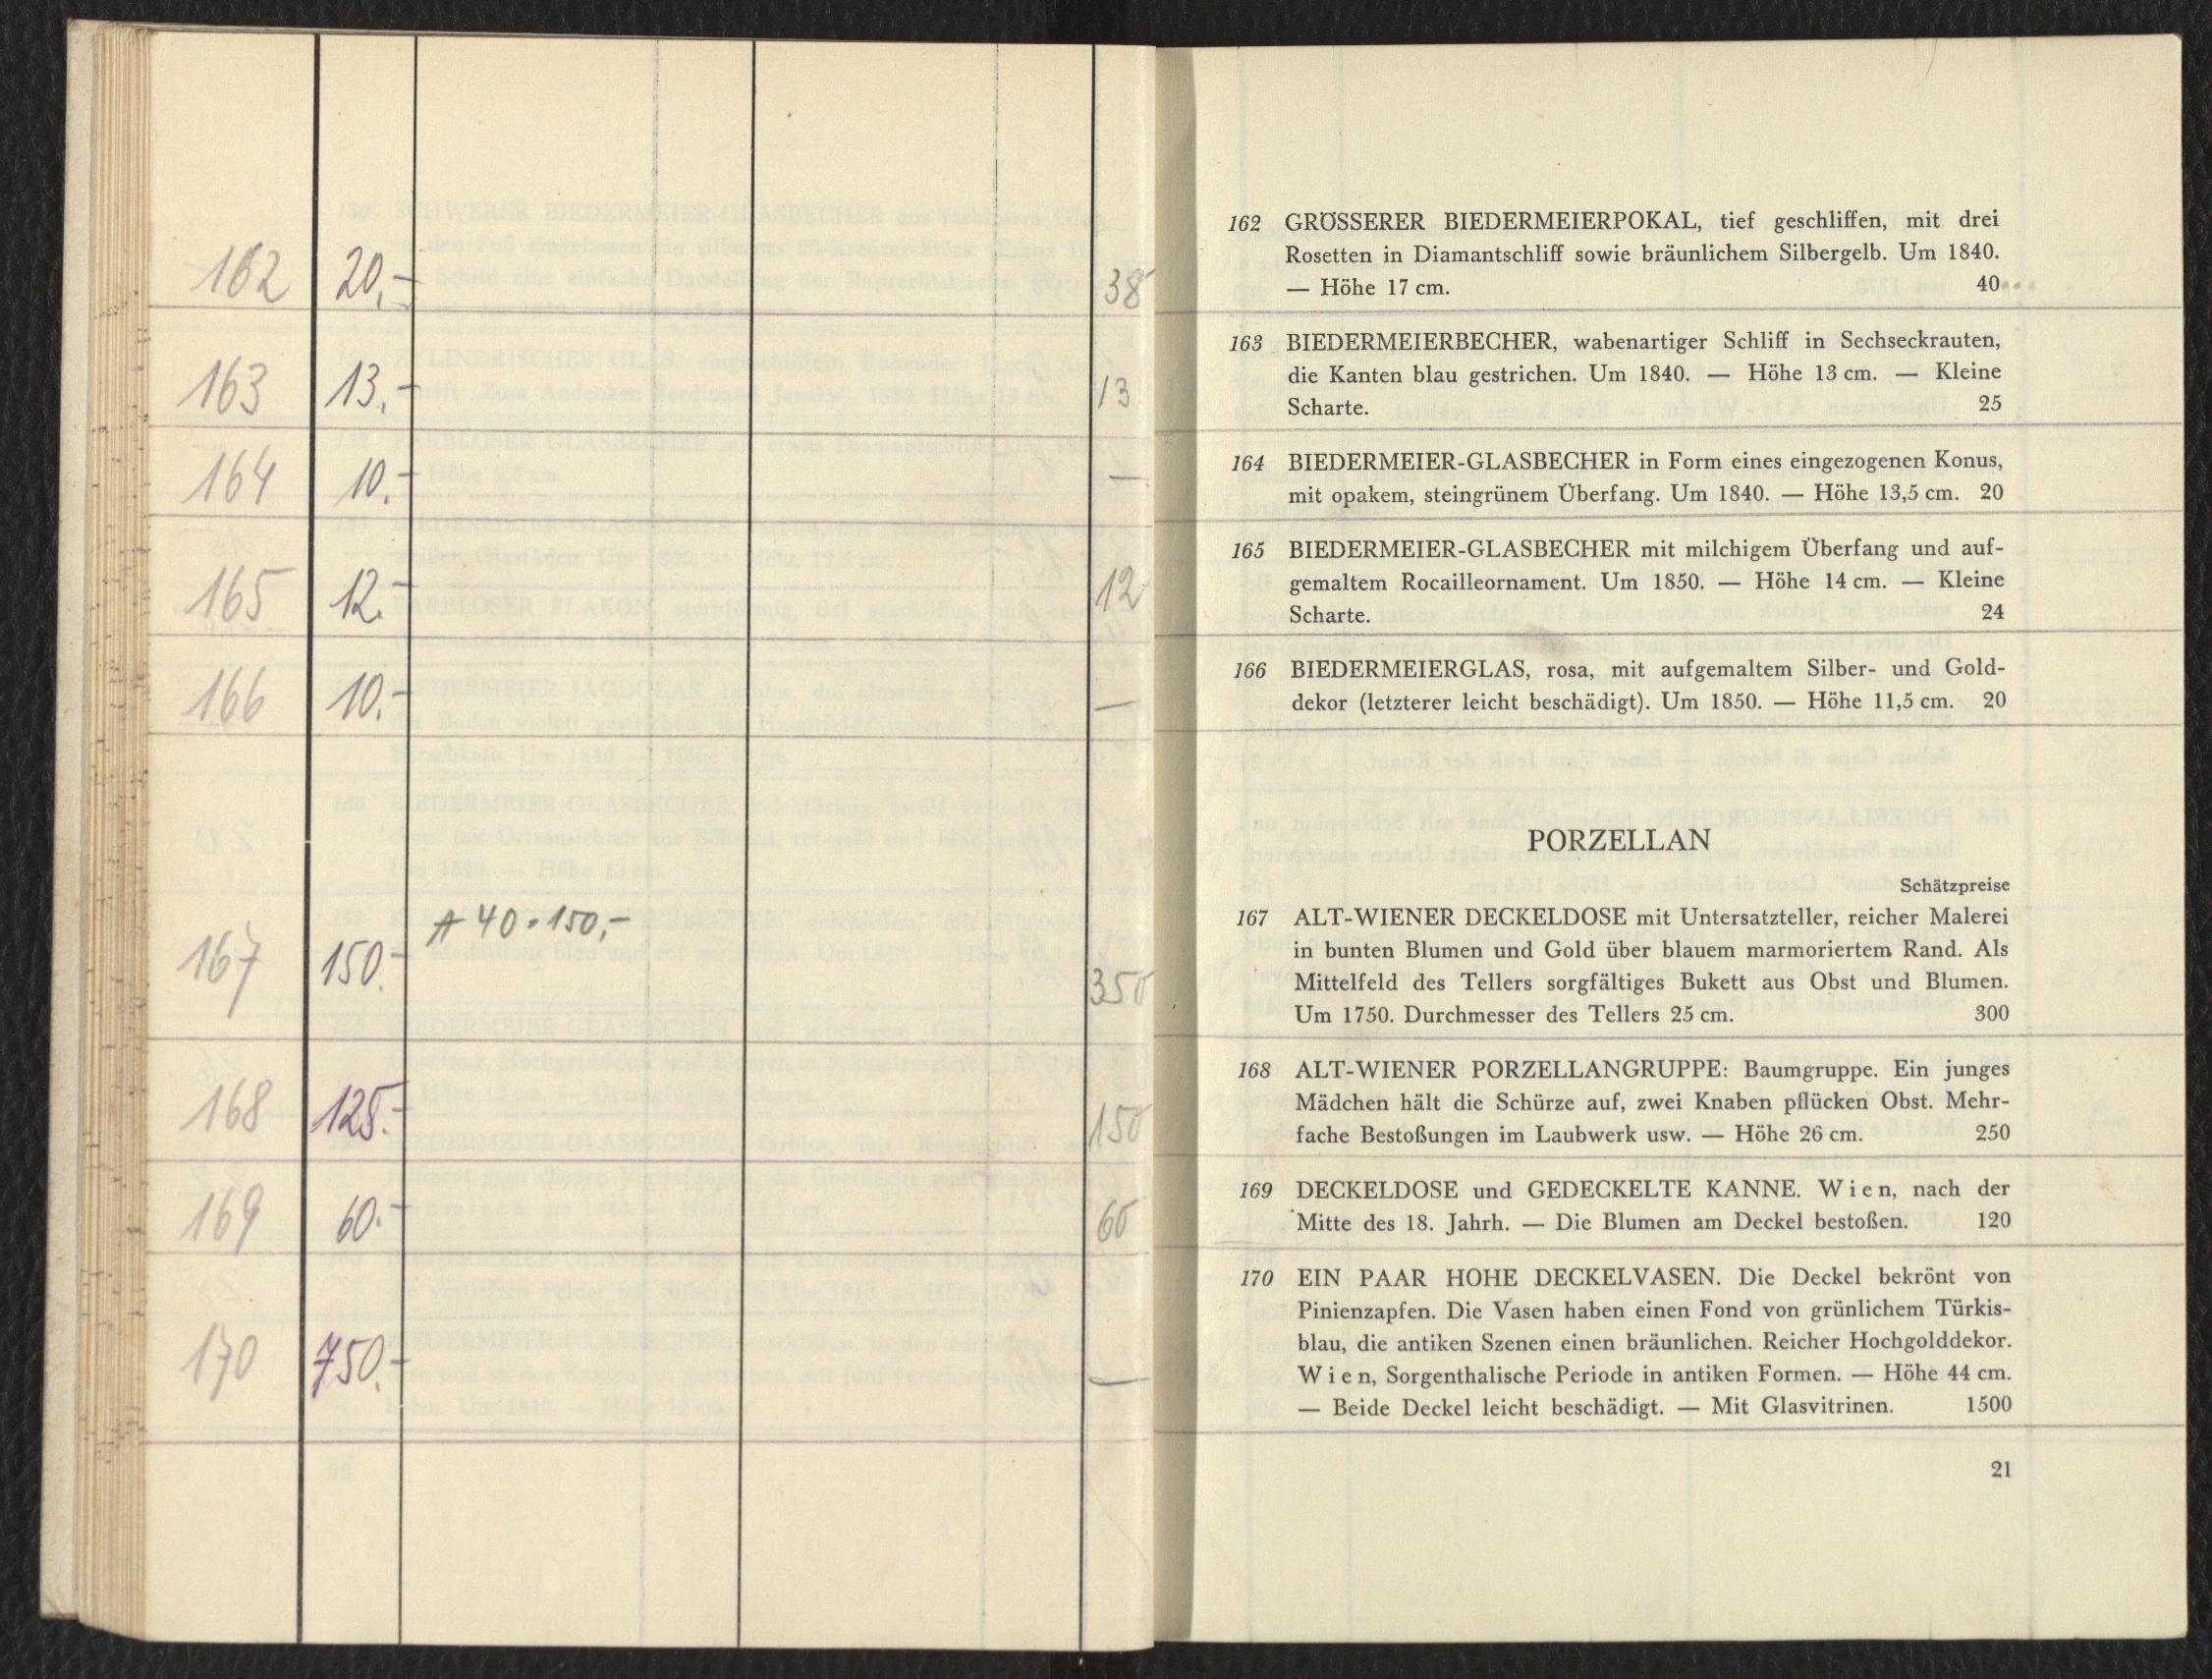 162 20,- 38
163 13,- 13
164 10.- —
165 12.- 12
166 10.- —
A 40 · 150,-
167 150.- 350
168 125.- 150
169 60.- 60
170 750.- —
162 GRÖSSERER BIEDERMEIERPOKAL, tief geschliffen, mit drei
Rosetten in Diamantschliff sowie bräunlichem Silbergelb. Um 1840.
— Höhe 17 cm. 40
163 BIEDERMEIERBECHER, wabenartiger Schliff in Sechseckrauten,
die Kanten blau gestrichen. Um 1840. — Höhe 13 cm. — Kleine
Scharte. 25
164 BIEDERMEIER-GLASBECHER in Form eines eingezogenen Konus,
mit opakem, steingrünem Überfang. Um 1840. — Höhe 13,5 cm. 20
165 BIEDERMEIER-GLASBECHER mit milchigem Überfang und auf-
gemaltem Rocailleornament. Um 1850. — Höhe 14 cm. — Kleine
Scharte. 24
166 BIEDERMEIERGLAS, rosa, mit aufgemaltem Silber- und Gold-
dekor (letzterer leicht beschädigt). Um 1850. — Höhe 11,5 cm. 20
PORZELLAN
Schätzpreise
167 ALT-WIENER DECKELDOSE mit Untersatzteller, reicher Malerei
in bunten Blumen und Gold über blauem marmoriertem Rand. Als
Mittelfeld des Tellers sorgfältiges Bukett aus Obst und Blumen.
Um 1750. Durchmesser des Tellers 25 cm. 300
168 ALT-WIENER PORZELLANGRUPPE: Baumgruppe. Ein junges
Mädchen hält die Schürze auf, zwei Knaben pflücken Obst. Mehr-
fache Bestoßungen im Laubwerk usw. — Höhe 26 cm. 250
169 DECKELDOSE und GEDECKELTE KANNE. Wien, nach der
Mitte des 18. Jahrh. — Die Blumen am Deckel bestoßen. 120
170 EIN PAAR HOHE DECKELVASEN. Die Deckel bekrönt von
Pinienzapfen. Die Vasen haben einen Fond von grünlichem Türkis-
blau, die antiken Szenen einen bräunlichen. Reicher Hochgolddekor.
Wien, Sorgenthalische Periode in antiken Formen. — Höhe 44 cm.
— Beide Deckel leicht beschädigt. — Mit Glasvitrinen. 1500
21